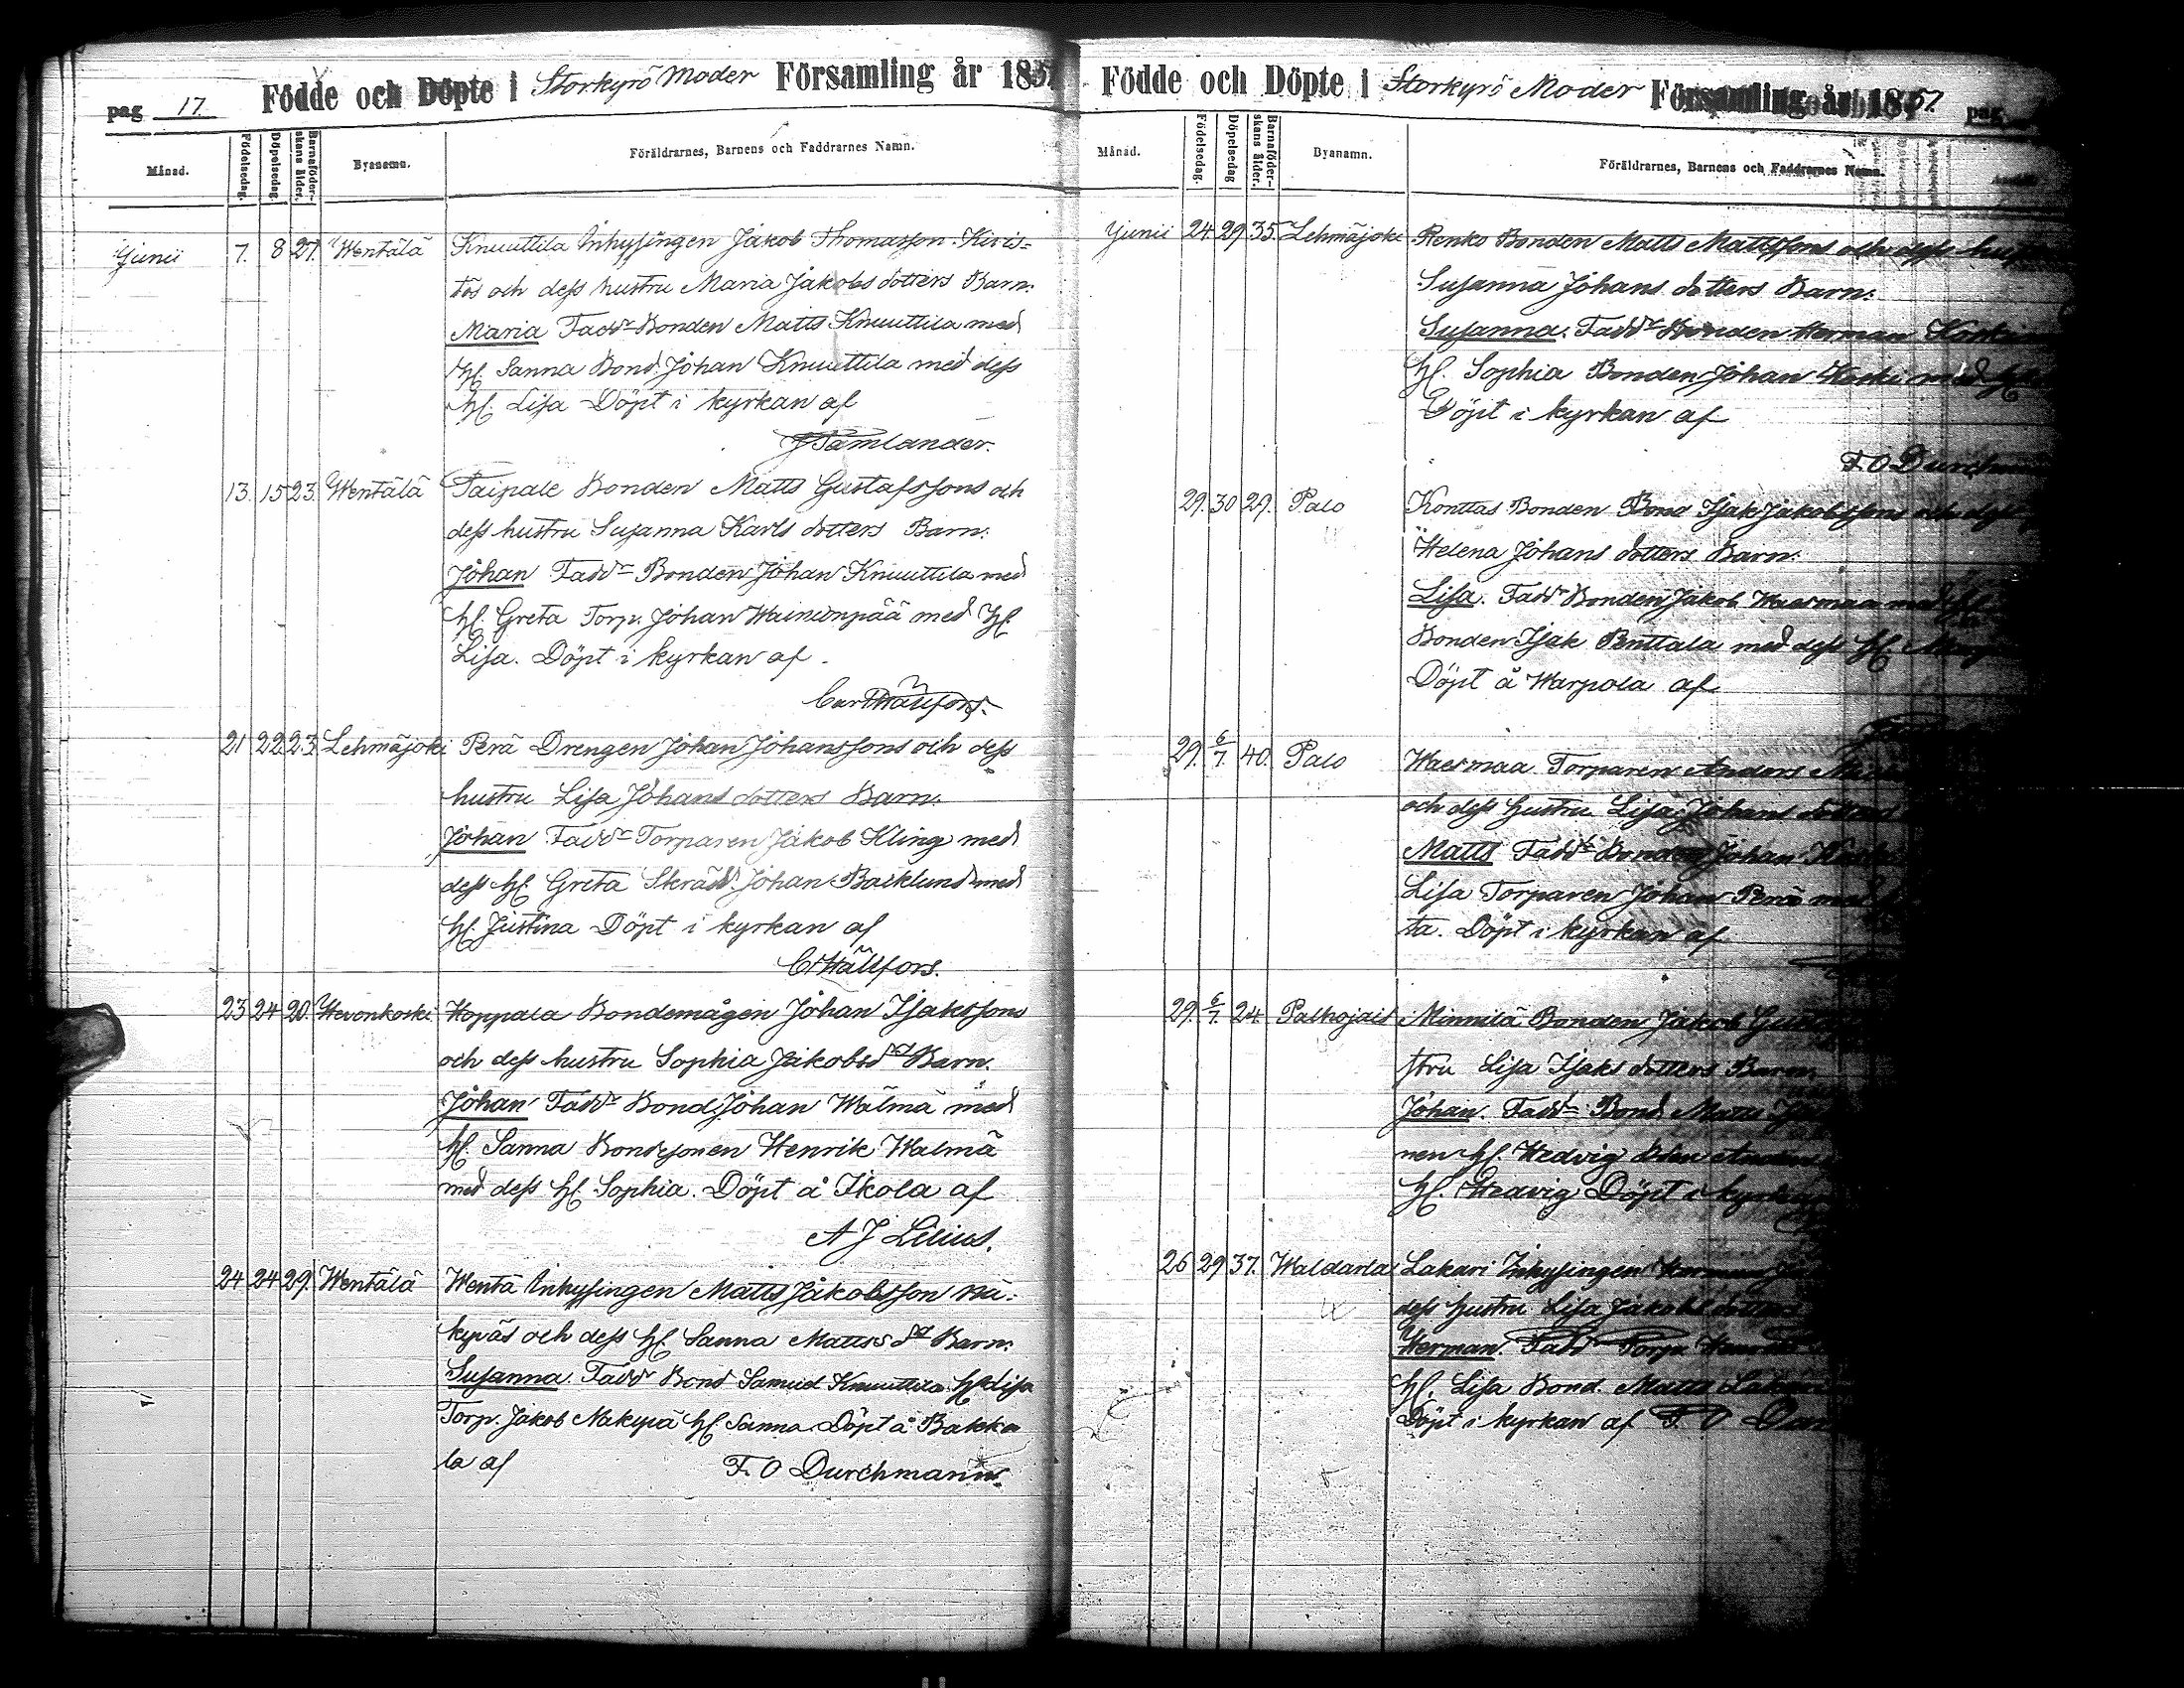 pag 17. Födde och Döpte i Storkyrö Moder Församling år 1857.
Månad. Födelsedag. Döpelsedag. Barnaföderskans ålder. Byanamn. Föräldrarnes, Barnens och Faddrarnes Namn.
Junii 7. 8 27. Wentälä Knuuttila Inhysingen Jakob Thomasson Kiris-
tös och dess hustru Maria Jakobs dotters Barn:
Maria Faddr Bonden Matts Knuuttila med
H. Sanna Bond. Johan Knuuttila med dess
H. Lisa Döpt i kyrkan af
J Tamlander.
13. 15 23. Wentälä Taipale Bonden Matts Gustafssons och
dess hustru Susanna Karls dotters Barn:
Johan Faddr Bonden Johan Knuuttila med
H. Greta Torp. Johan Wainionpää med H.
Lisa. Döpt i kyrkan af.
Carl Hällfors.
21 22 23. Lehmäjoki Perä Drengen Johan Johanssons och dess
hustru Lisa Johans dotters Barn:
Johan Faddr Torparen Jakob Kling med
dess H. Greta Skrädd. Johan Backlund med
H. Justina Döpt i kyrkan af
C Hällfors.
23 24 20. Hevonkoski Hoppala Bondemågen Johan Isakssons
och dess hustru Sophia Jakobsdr Barn.
Johan Faddr Bond. Johan Walmä med
H. Sanna Bondesonen Henrik Walmä
med dess H. Sophia. Döpt å Ikola af
A J Lilius.
24 24 29. Wentälä Wentä Inhysingen Matts Jakobsson Nä-
kyväs och dess H. Sanna Matts dr Barn:
Susanna Faddr Bond Samuel Knuuttila H. Lisa
Torp. Jakob Näkyvä H. Sanna Döpt å Bakka
la af F. O Durchmann.
Födde och Döpte i Storkyrö Moder Församling år 1857. pag
Månad. Födelsedag. Döpelsedag Barnaföderskans ålder. Byanamn. Föräldrarnes, Barnens och Faddrarnes Namn.
Junii 24 29 35. Lehmäjoki Renko Bonden Matts Mattssons och dess
Susanna Johans dotters Barn:
Susanna. Faddr Bonden Herman
H. Sophia Bonden Johan Koski med
Döpt i kyrkan af
F. O
29. 30 29. Palo Konttas Bonden Isak Jakobssons och dess
Helena Johans dotters Barn:
Lisa. Faddr Bonden Jakob Waesmaa med
Bonden Isak Penttala med dess H.
Döpt å Warpola af
29. 6/7. 40. Palo Waesmaa Torparen Anders
och dess hustru Lisa Johans dotters
Matts Faddr Bonden Johan
Lisa Torparen Johan Perä med
ta. Döpt i kyrkan af
29. 6/7. 24 Palhojais Minnilä Bonden Jakob
stru Lisa Isaks dotters Barn
Johan. Faddr Bond Matts
nen H. Hedvig
H. Hedvig Döpt i kyrkan
26 29 37. Waldarla Lakari Inhysingen
dess hustru Lisa Jakobs dotters
Herman. Faddr Torp.
H. Lisa Bond. Matts
Döpt i kyrkan af F. O